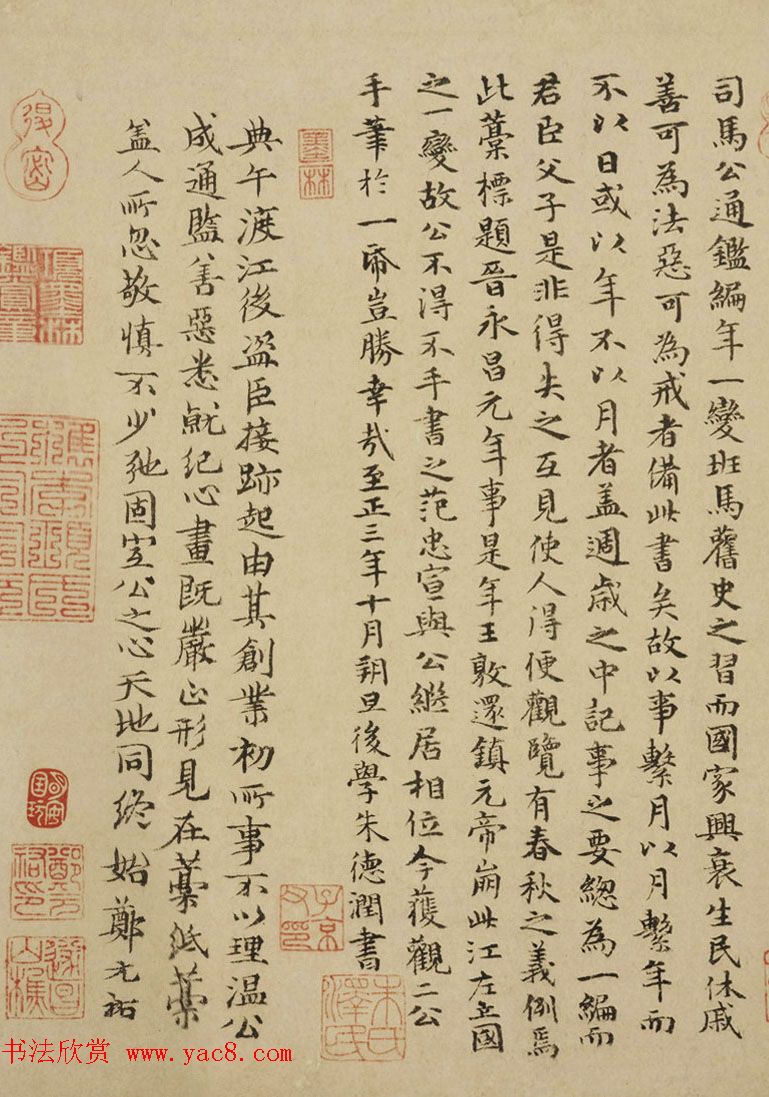 司馬公通鑑編年一變班馬舊史之習而國家興衰生民休戚
善可為法惡可為戒者備此書矣故以事繫月以月繫年而
不以日或以年不以月者盖週歲之中記事之要總為一編而
君臣父子是非得失之互見使人得便觀覽有春秋之義例焉
此藁標題晉永昌元年事是年王敦還鎮元帝崩此江左立國
之一變故公不得不手書之范忠宣與公繼居相位今獲觀二公
手筆於一帋豈勝幸哉至正三年十月朔旦後學朱德潤書
典午渡江後盗臣接跡起由其創業初所事不以理温公
成通監善惡悉就紀心畫既嚴正形見在藁紙藁
盖人所忽敬慎不少弛固宜公之心天地同終始鄭元祐
墨林
子京父印
朱氏澤民
鄭元祐印
书法欣赏 www.yac8.com